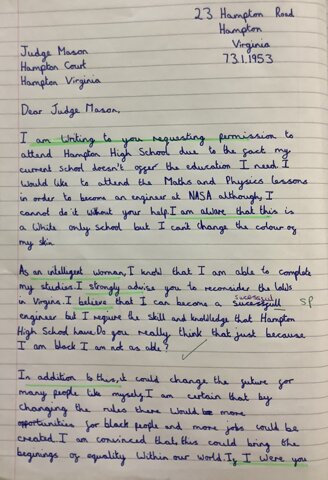 23 Hampton Road
Hampton
Virginia
73.1.1953
Judge Mason
Hampton Court
Hampton Virginia
Dear Judge Mason,
I am writing to you requesting permission to
attend Hampton High School due to the fact my
current school doesn't offer the education I need I
would like to attend the Maths and Physics lessons
in order to become an engineer at NASA although, I
cannot do it without your help. I am aware that this is
a white only school but I can't change the colour of
my skin.
As an intelligent woman, I know that I am able to complete
my studies. I strongly advise you to reconsider the laws
in Virgina. I believe that I can become a
sucessful
sucessfull SP
engineer but I require the skill and knowledge that Hampton
High School have. Do you really think that just because
I am black I am not as able?
In addition to this, it could change the future for
many people like myself. I am certain that by
changing the rules there would be more
opportunities for black people and more jobs could be
created. I am convinced that this could bring the
beginings of equality within our world. If I were you